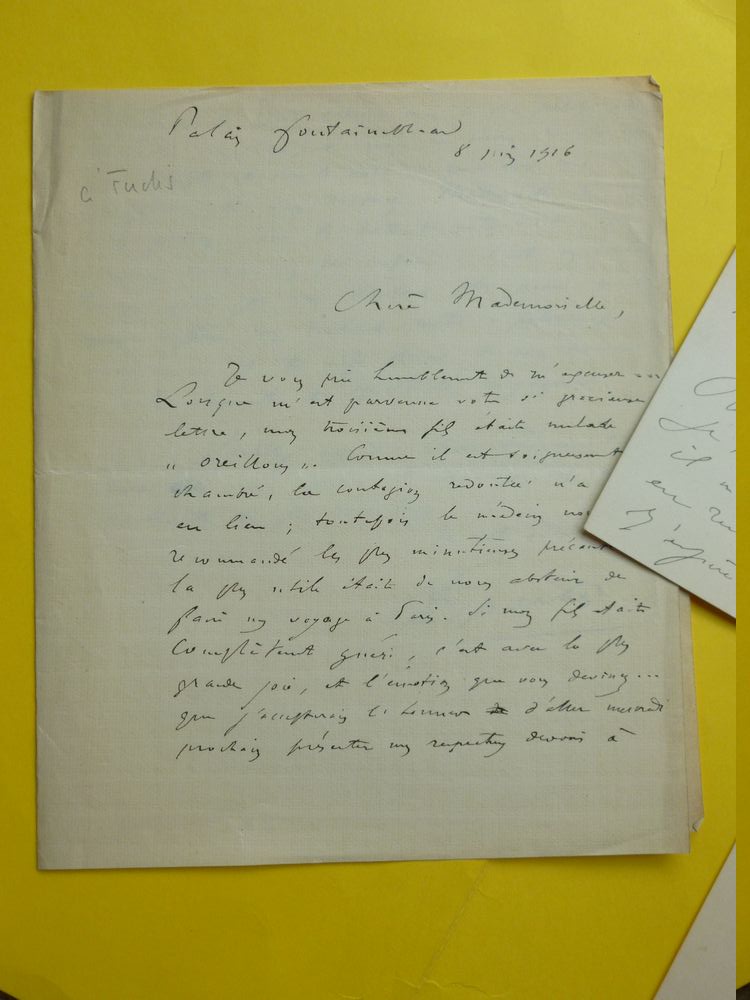 Palais Fontainebleau
8 juin 1916
à Fuchs
Chère Mademoiselle,
Je vous prie humblement de m'excuser
Lorsque m'est parvenue votre si gracieuse
lettre, mon troisième fils était malade
"oreillons". Comme il est soigneusement
chambré, la contagion redoutée n'a
eu lieu ; toutefois le médecin nous
recommandé les plus minutieuses
la plus utile était de nous abstenir de
faire un voyage à Paris. Si mon fils était
complètement guéri, c'est avec la plus
grande joie, et l'émotion que vous devinez...
que j'accepterais l'honneur d'aller mercredi
prochain présenter mes respectueux devoirs à
il
en